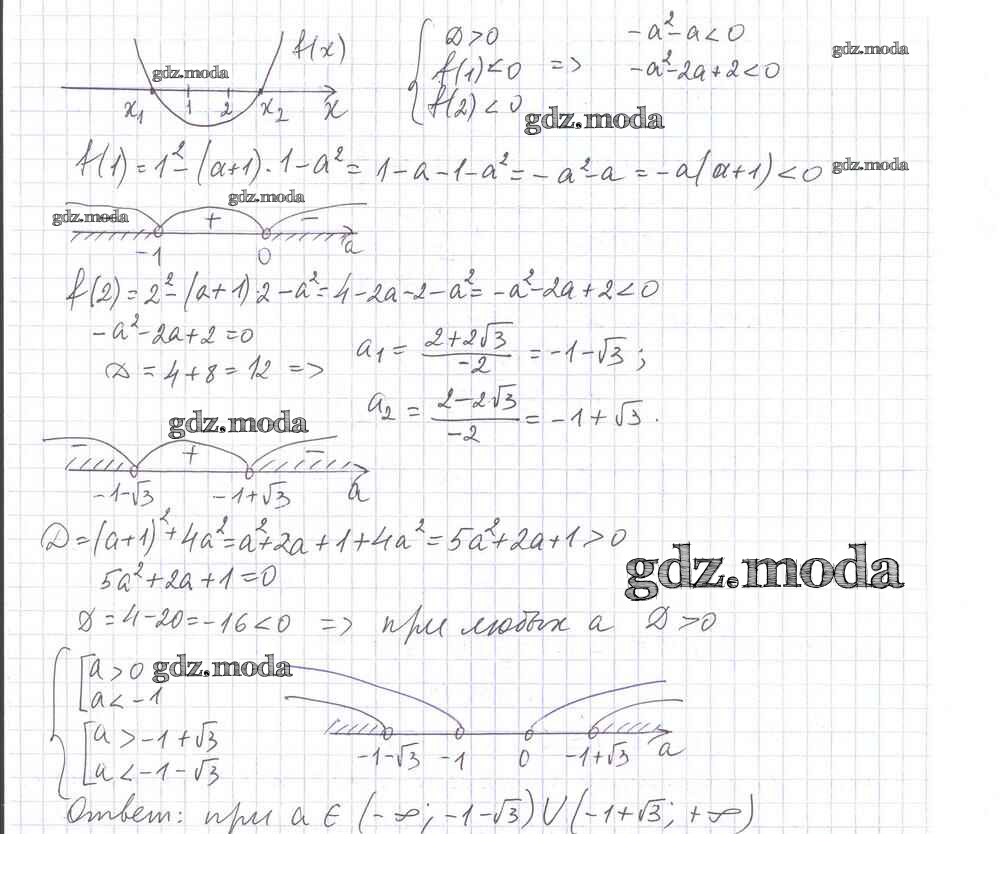 f(x)
gdz.moda
x₁ 1 2 x₂ x
{ D>0
f(1)<0 => -a²-a<0
f(2)<0 -a²-2a+2<0
gdz.moda
gdz.moda
f(1)=1²-(a+1)·1-a²=1-a-1-a²=-a²-a=-a(a+1)<0
gdz.moda
gdz.moda
gdz.moda
+ -
-1 0 a
f(2)=2²-(a+1)·2-a²=4-2a-2-a²=-a²-2a+2<0
-a²-2a+2=0
D=4+8=12 => a₁=(2+2√3)/(-2)=-1-√3;
a₂=(2-2√3)/(-2)=-1+√3.
gdz.moda
- + -
-1-√3 -1+√3 a
D=(a+1)²+4a²=a²+2a+1+4a²=5a²+2a+1>0
5a²+2a+1=0
gdz.moda
D=4-20=-16<0 => при любых a D>0
{ [ a>0
a<-1
gdz.moda
[ a>-1+√3
a<-1-√3
-1-√3 -1 0 -1+√3 a
Ответ: при a∈(-∞;-1-√3)∪(-1+√3;+∞)